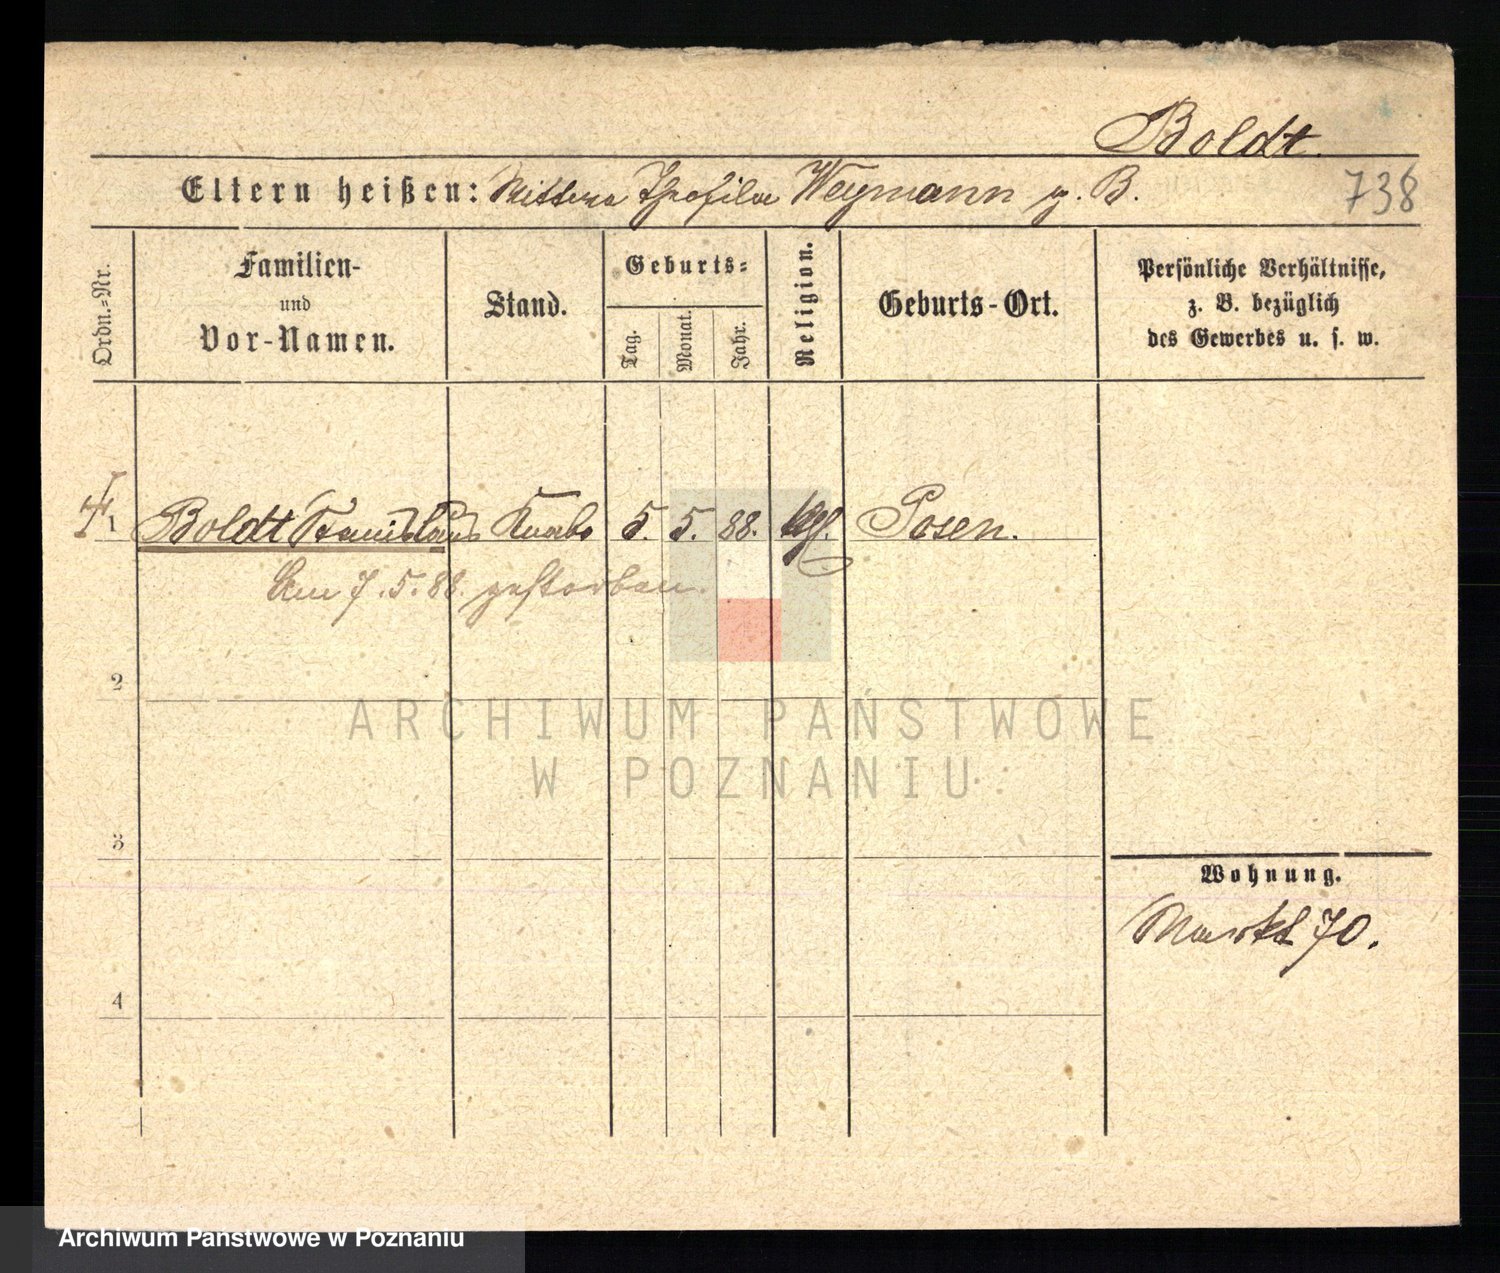 Boldt.
Eltern heißen: Theofila Weymann g. B.
738
Ordn.-Nr.
Familien-
und
Vor-Namen.
Stand.
Geburts-
Tag.
Monat.
Jahr.
Religion.
Geburts-Ort.
Persönliche Verhältnisse,
z. B. bezüglich
des Gewerbes u. s. w.
1 Boldt Stanislaus Knabe 5. 5. 88. kth. Posen.
Am 7.5.88. gestorben.
2
ARCHIWUM PAŃSTWOWE
W POZNANIU
3
Wohnung.
Markt 70.
4
Archiwum Państwowe w Poznaniu